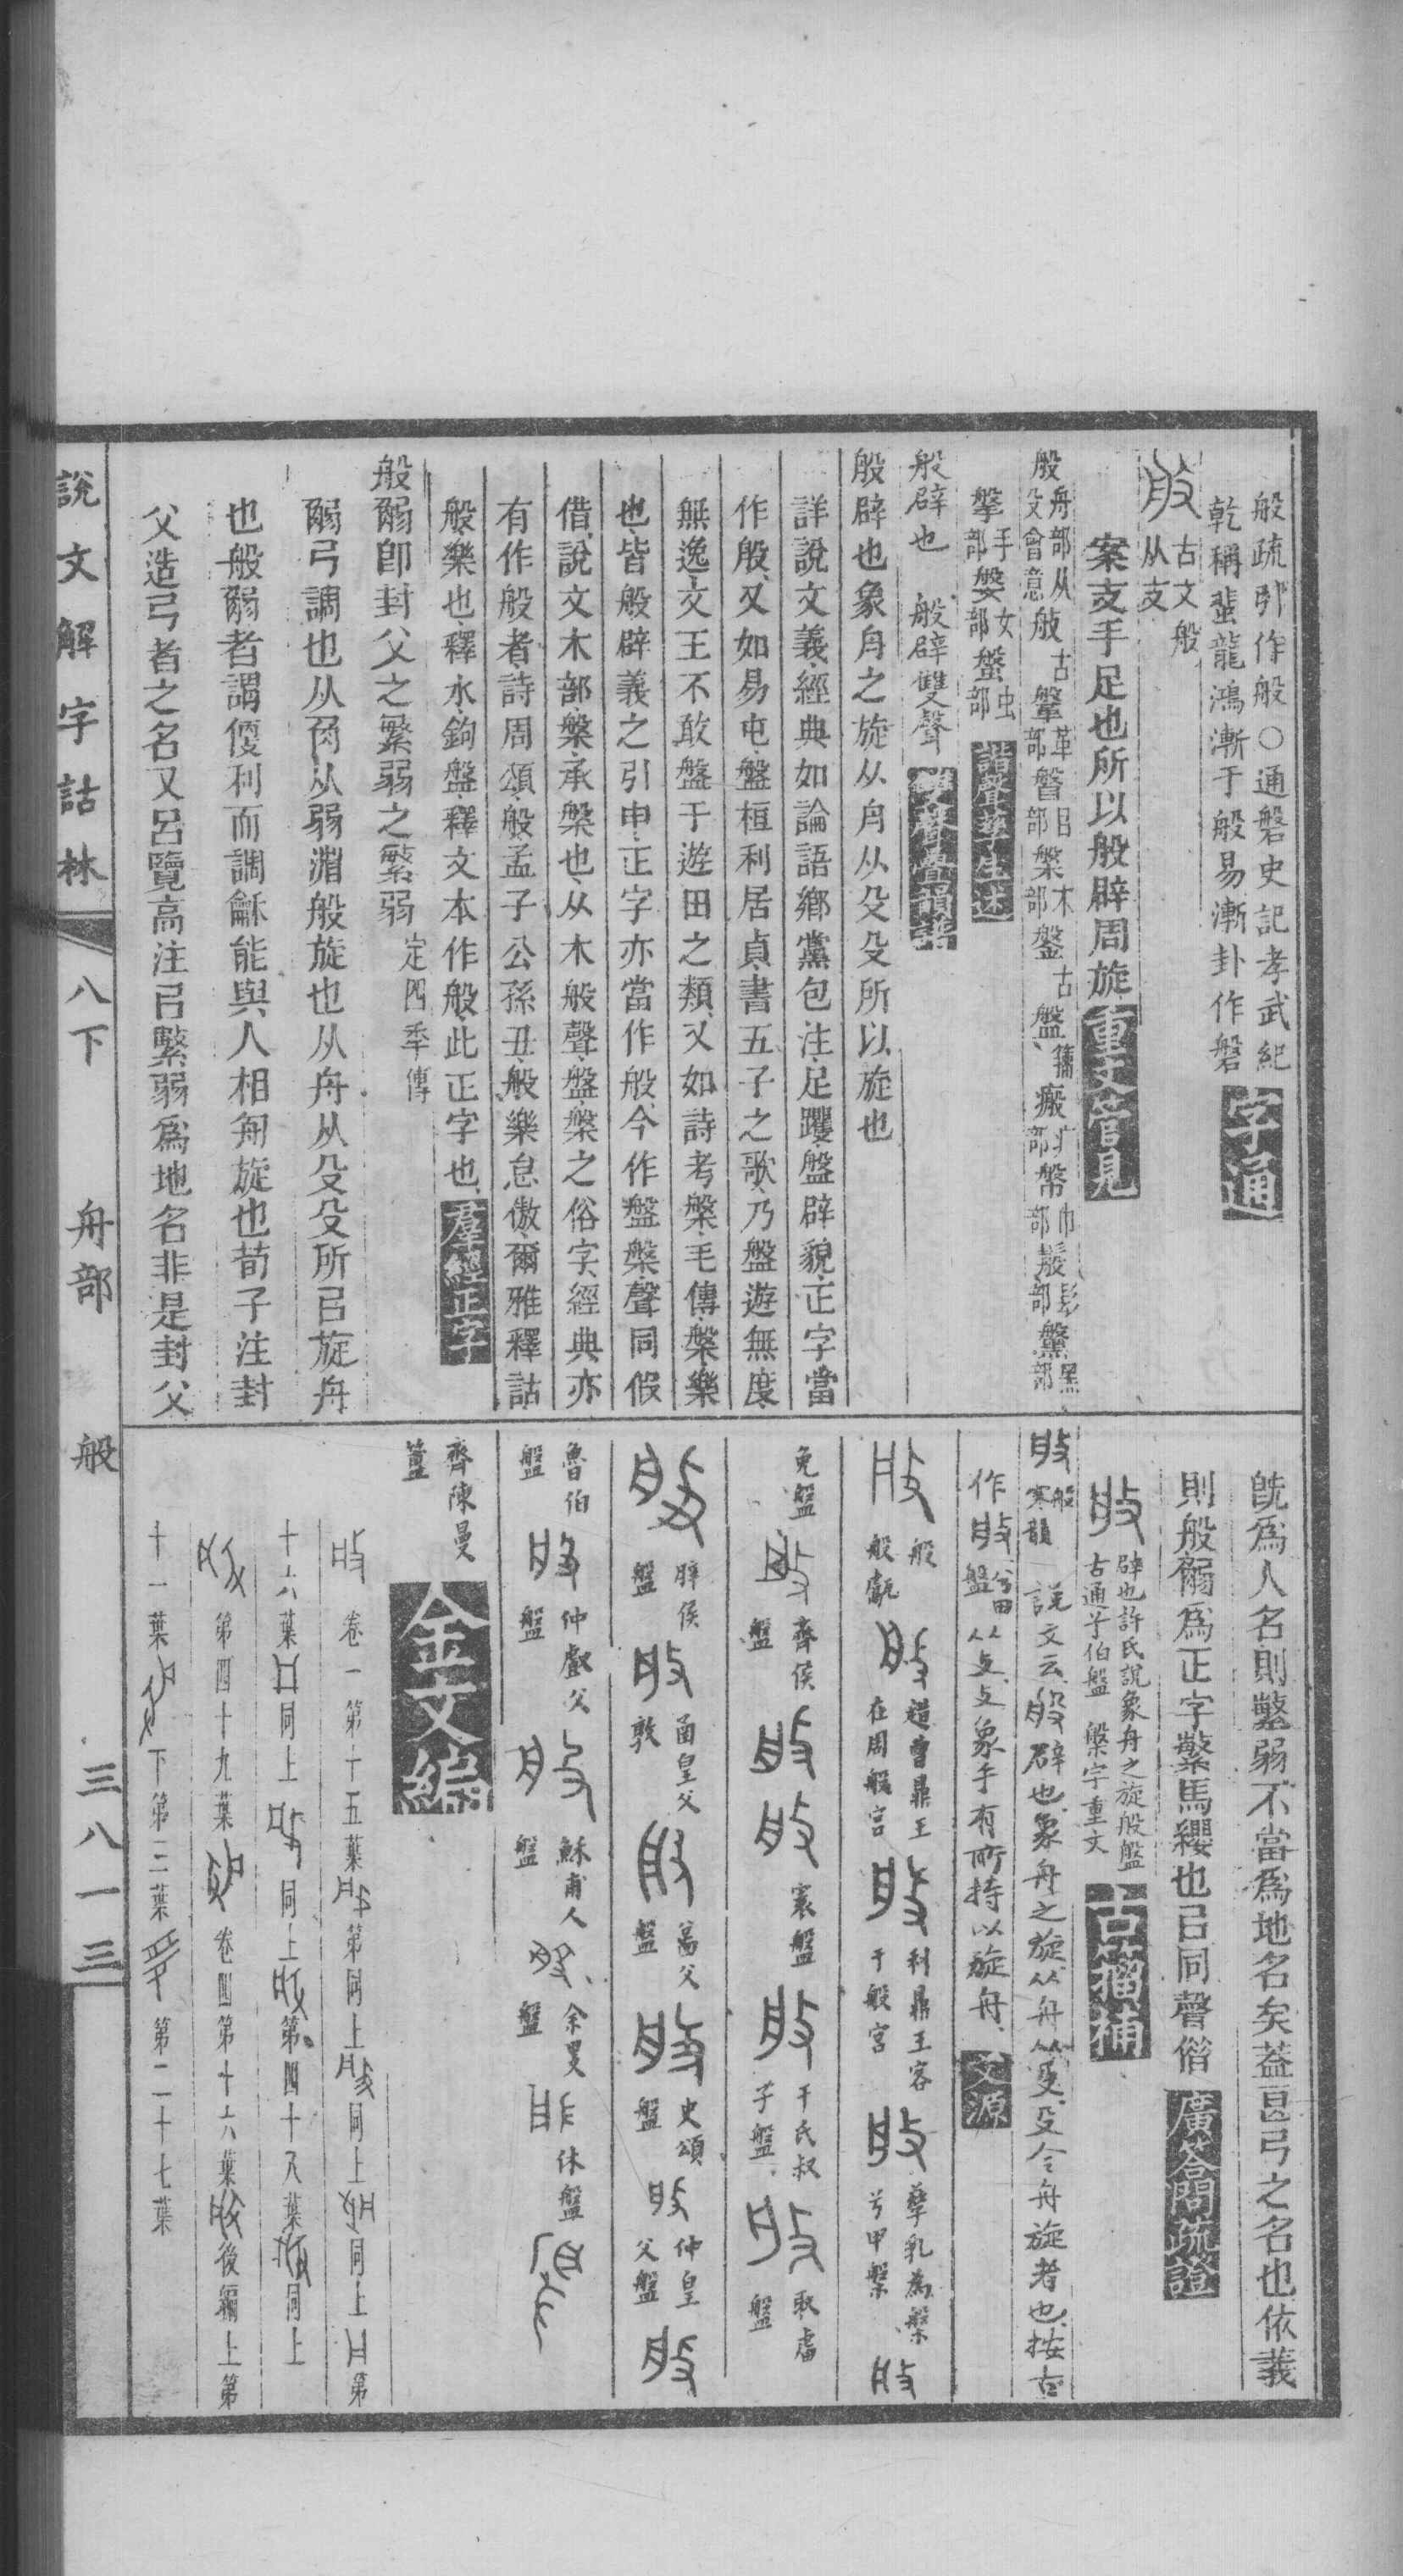 般疏引作般○通磐史記孝武紀
乾稱蜚龍鴻漸于般易漸卦作磐 字通
古文般
从支
案支手足也所以般辟周旋 重文管見
般 舟部从殳會意 古 鞶 革部 瞥 目部 槃 木部 鎜 古 盤 籀 瘢 疒部 幋 巾部 鬆 髟部 黑部
擎 手部 媻 女部 螌 虫部 諧聲孳生述
般辟也 般辟雙聲
般辟也象舟之旋从舟从殳殳所以旋也
詳說文義經典如論語鄉黨包注足躩盤辟貌正字當
作般又如易屯盤桓利居貞書五子之歌乃盤遊無度
無逸文王不敢盤于遊田之類又如詩考槃毛傳槃樂
也皆般辟義之引申正字亦當作般今作盤槃聲同假
借說文木部槃承槃也从木般聲盤槃之俗字經典亦
有作般者詩周頌般孟子公孫丑般樂怠傲爾雅釋詁
般樂也釋水鉤盤釋文本作般此正字也 羣經正字
般䰜卽封父之繁弱之繁弱 定四季傳
弓調也从弱淵般旋也从舟从殳殳所㠯旋舟
也般者謂便利而調龢能與人相旋也荀子注封
父造弓者之名又呂覽高注㠯繁弱爲地名非是封父
旣爲人名則繁弱不當爲地名矣葢㠯弓之名也依義
則般爲正字繁馬纓也㠯同聲偕 廣答問疏證
辟也許氏說象舟之旋般盤
古通兮伯盤 槃字重文 古籀補
般 寒韻 說文云般辟也象舟之旋从舟从殳殳令舟旋者也按古
作 兮田盤 从攴攴象手有所持以旋舟 文源
般 般甗 趞曹鼎王在周般宮 利鼎王客于般宮 孳乳爲槃 兮甲槃
免盤 齊侯盤 寰盤 干氏叔子盤 取盧盤
盤 函皇父敦 父盤 史頌盤 仲皇父盤
魯伯盤 仲父盤 穌甫人盤 盤 休盤
齊陳曼簠 金文編
卷一第十五葉 第同上 同上 同上 第
十六葉 同上 同上 第四十八葉 同上
第四十九葉 卷四第十六葉 後編上第
十一葉 下第二葉 第二十七葉
說文解字詁林 八下 舟部 般 三八一三